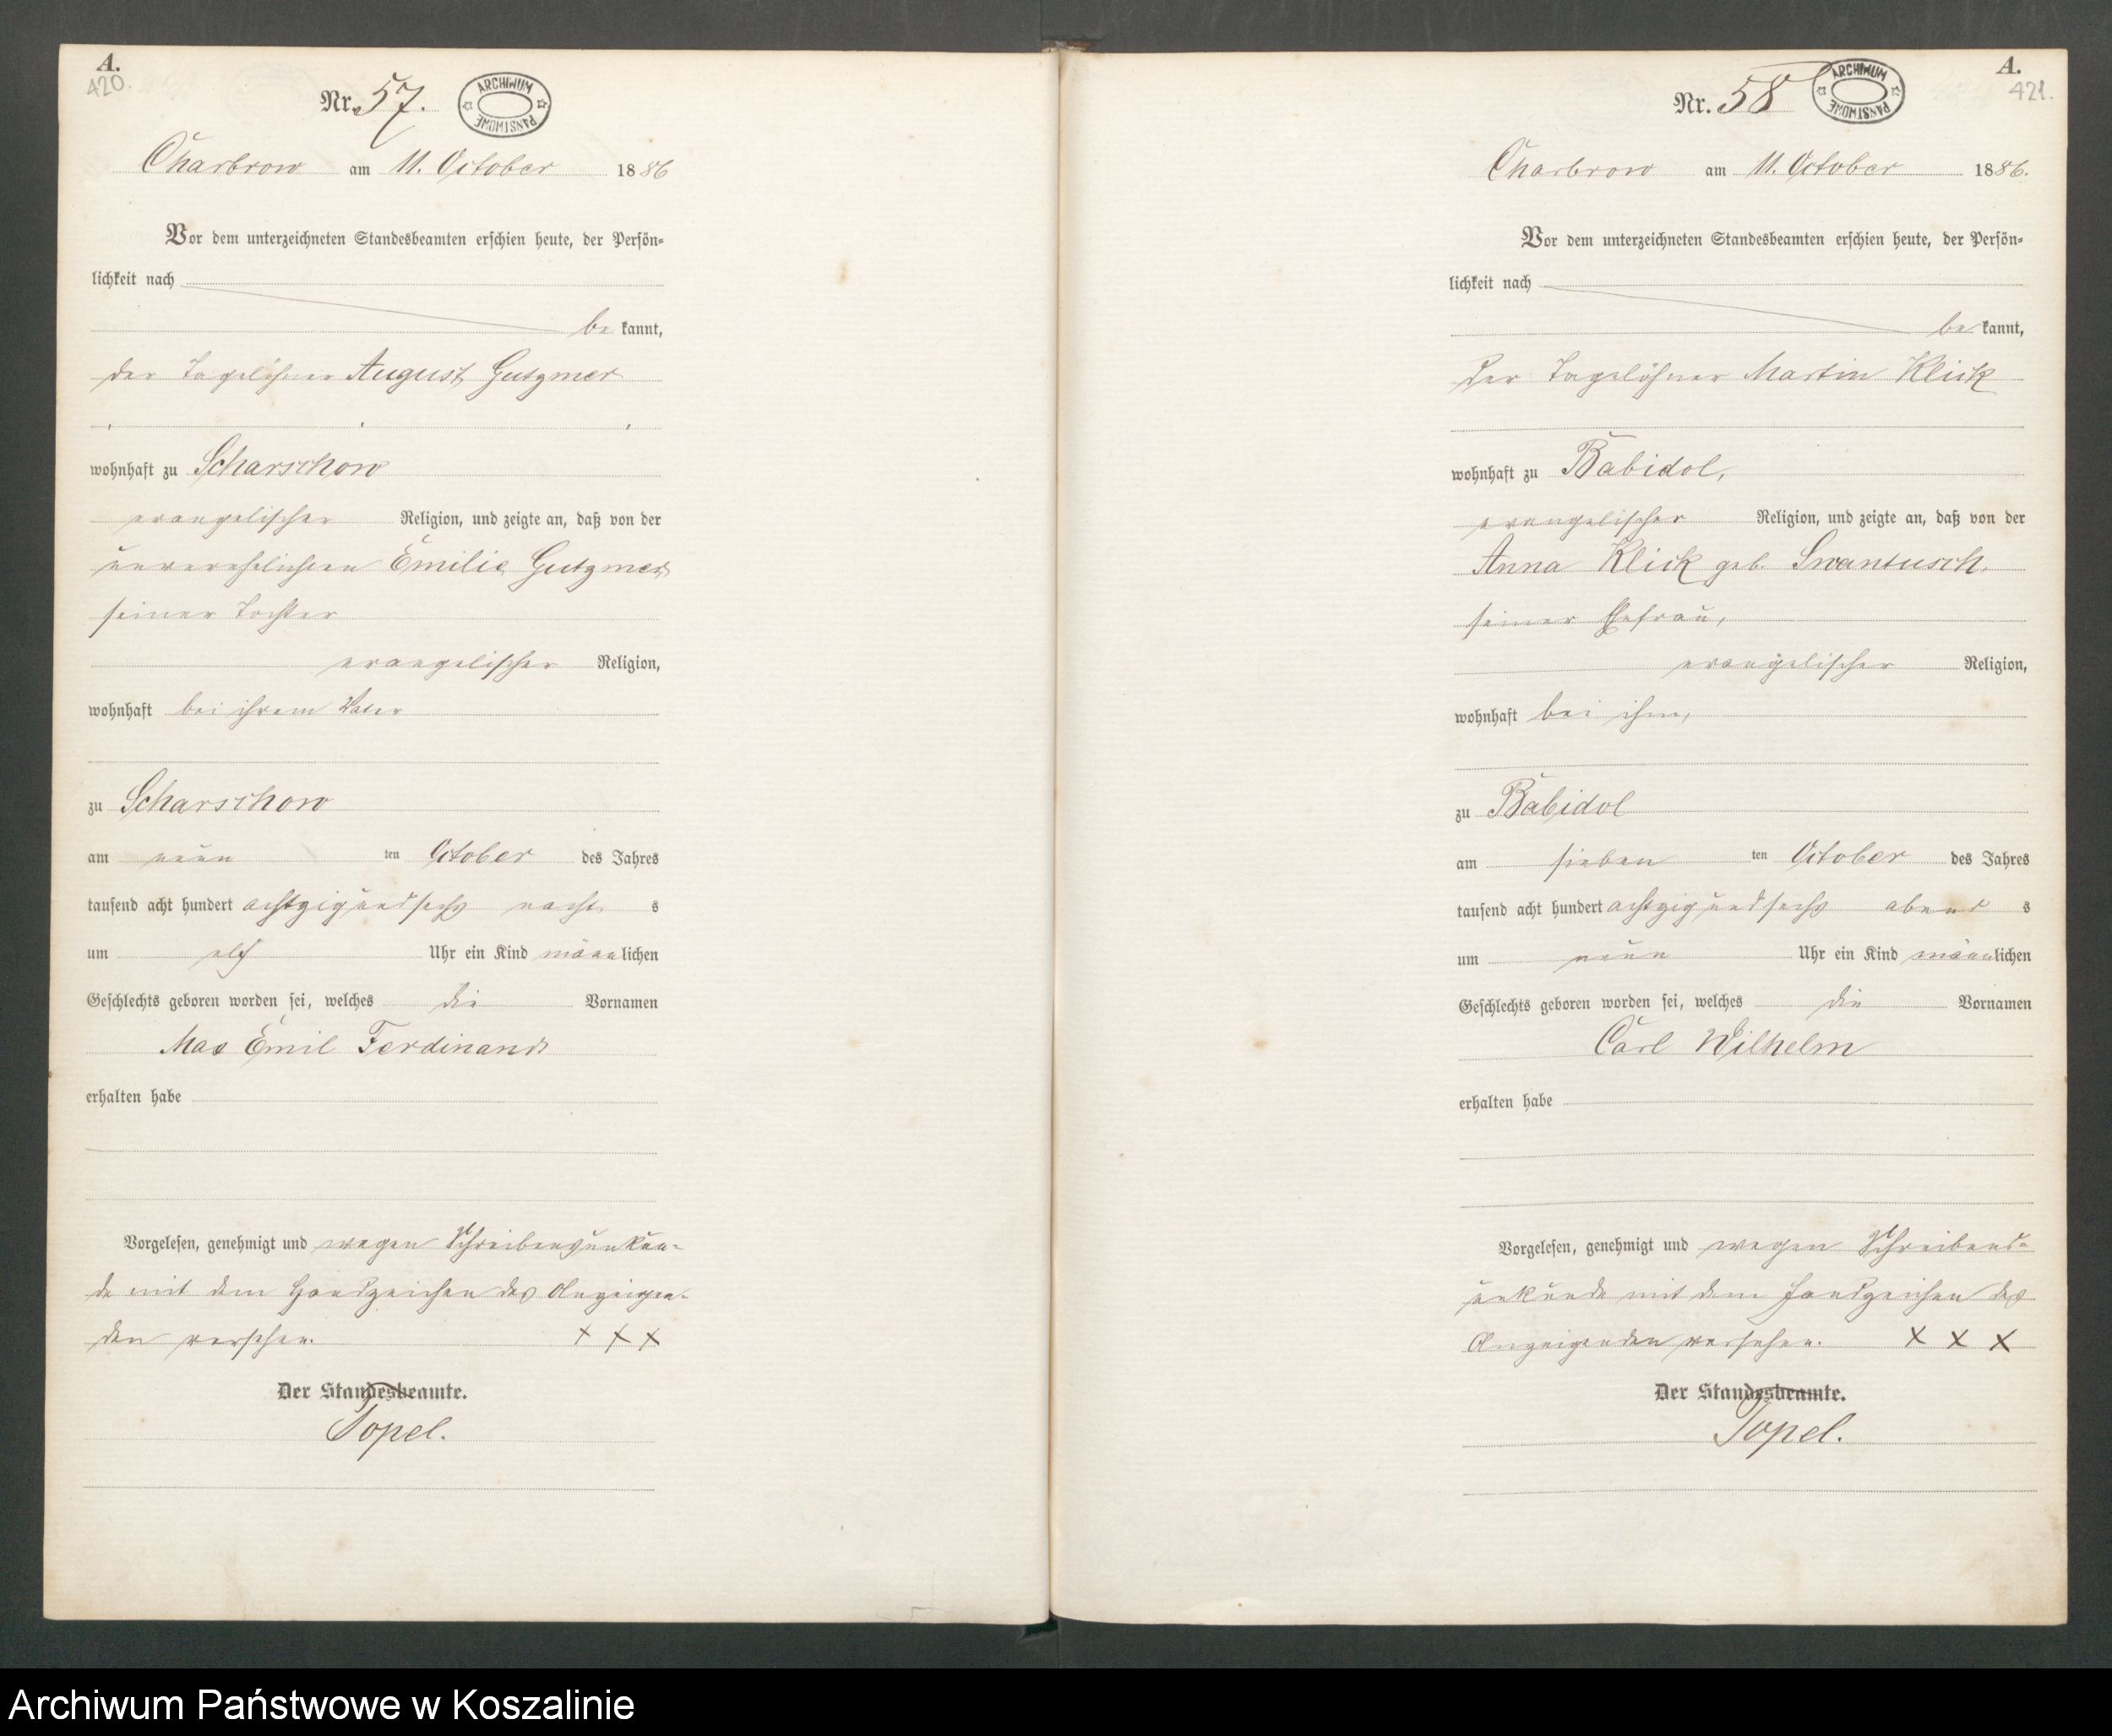 A.
420.
Nr. 57.
ARCHIWUM PAŃSTWOWE
Charbrow am 11. October 1886
Vor dem unterzeichneten Standesbeamten erschien heute, der Persön-
lichkeit nach
be kannt,
der Tagelöhner August Gutzmer
wohnhaft zu Scharschow
evangelischer Religion, und zeigte an, daß von der
unverehelichten Emilie Gutzmer
seiner Tochter
evangelischer Religion,
wohnhaft bei ihrem Vater
zu Scharschow
am neun ten October des Jahres
tausend acht hundert achtzig und sechs nacht s
um elf Uhr ein Kind männlichen
Geschlechts geboren worden sei, welches die Vornamen
Max Emil Ferdinand
erhalten habe
Vorgelesen, genehmigt und wegen Schreibensunkun-
de mit dem Handzeichen des Anzeigen-
den versehen. + + +
Der Standesbeamte.
Topel.
A.
421.
Nr. 58
ARCHIWUM PAŃSTWOWE
Charbrow am 11. October 1886.
Vor dem unterzeichneten Standesbeamten erschien heute, der Persön-
lichkeit nach
be kannt,
der Tagelöhner Martin Klick
wohnhaft zu Babidol,
evangelischer Religion, und zeigte an, daß von der
Anna Klick geb. Swantusch,
seiner Ehefrau,
evangelischer Religion,
wohnhaft bei ihm,
zu Babidol
am sieben ten October des Jahres
tausend acht hundert achtzig und sechs abend s
um neun Uhr ein Kind männlichen
Geschlechts geboren worden sei, welches die Vornamen
Carl Wilhelm
erhalten habe
Vorgelesen, genehmigt und wegen Schreibens-
unkunde mit dem Handzeichen des
Anzeigenden versehen. x x x
Der Standesbeamte.
Topel.
Archiwum Państwowe w Koszalinie